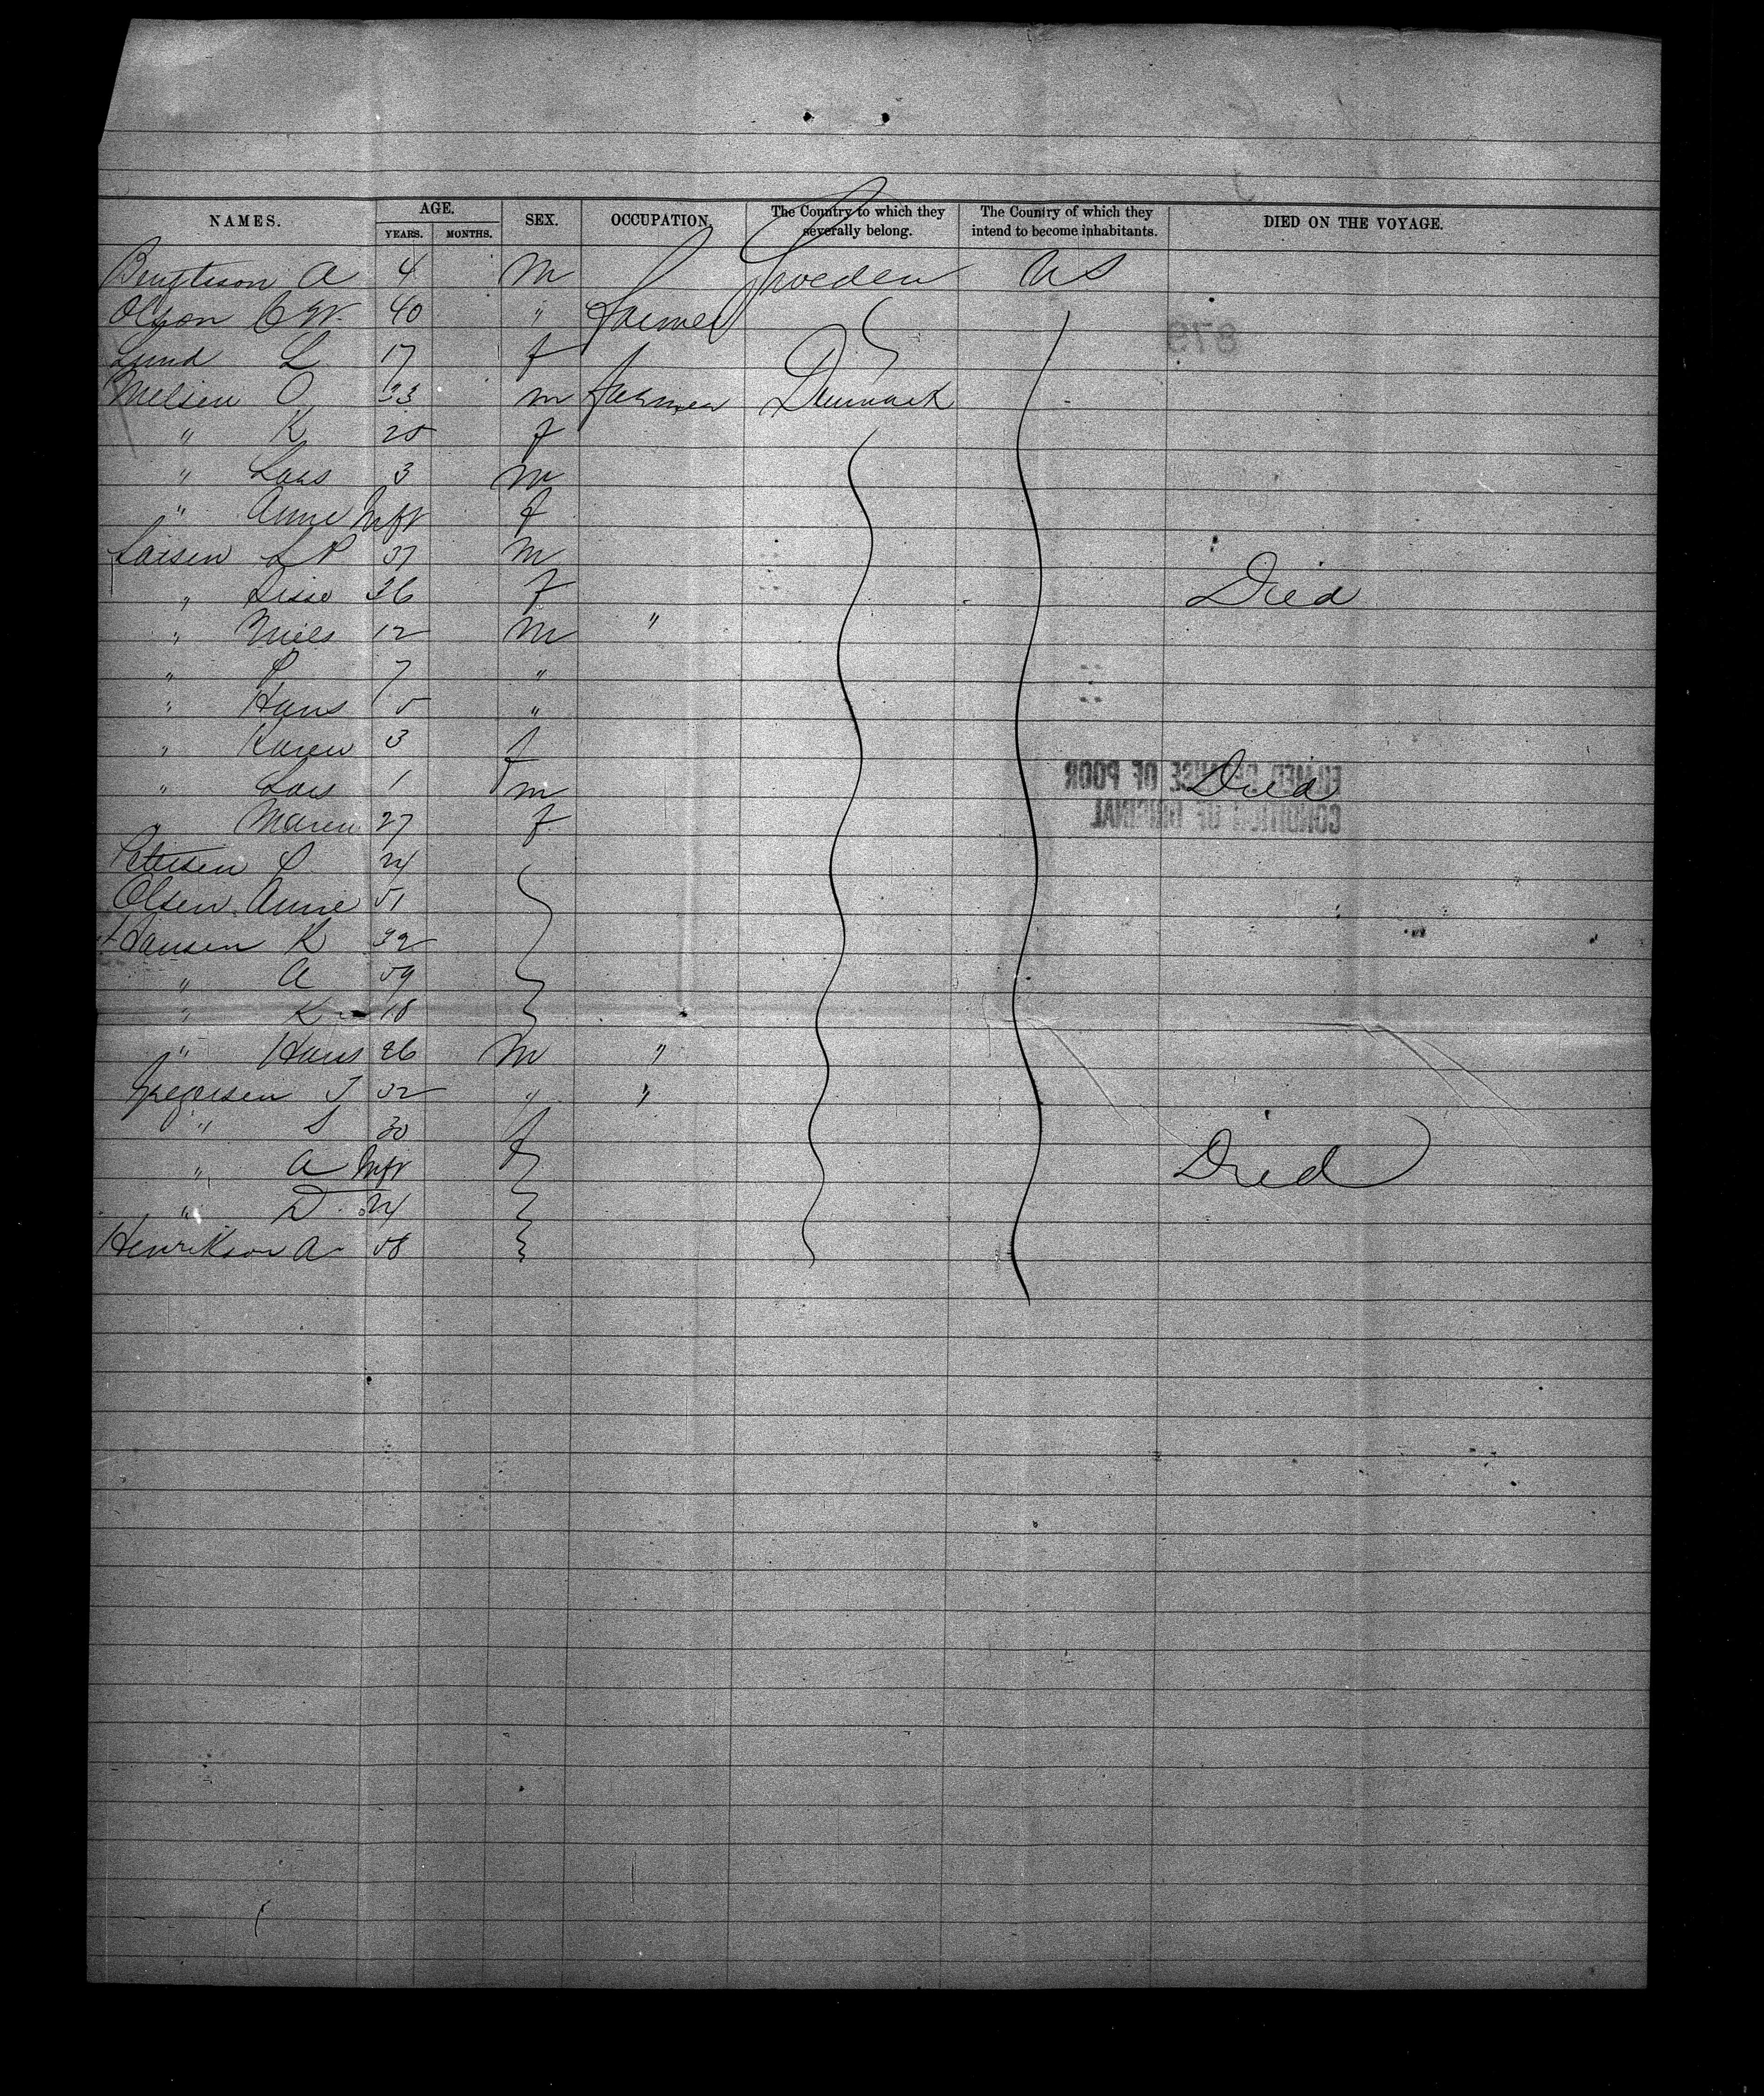 NAMES. AGE. SEX. OCCUPATION. The Country to which they severally belong. The Country of which they intend to become inhabitants. DIED ON THE VOYAGE.
YEARS. MONTHS.
Bengtson A 4 M Sweden US
Olson C W. 40 " Farmer
Lund L 17 f
Nielsen O 33 m Farmer Denmark
" K 25 f
" Lars 3 m
" Anne Inft f
Larsen L P 37 m
" Sisse 36 f Died
" Niels 12 m "
" P 7 "
" Hans 5 "
" Karen 3 f
" Lars 1 m Died
" Maren 27 f
Petersen P 24
Olsen Anne 51
Hansen K 32
" A 59
" K 18
" Hans 26 m "
Jregersen J 32 " "
" S 30 f
" A Inft Died
" D. 24
Henrikson A 58
879
FILMED BECAUSE OF POOR
CONDITION OF ORIGINAL